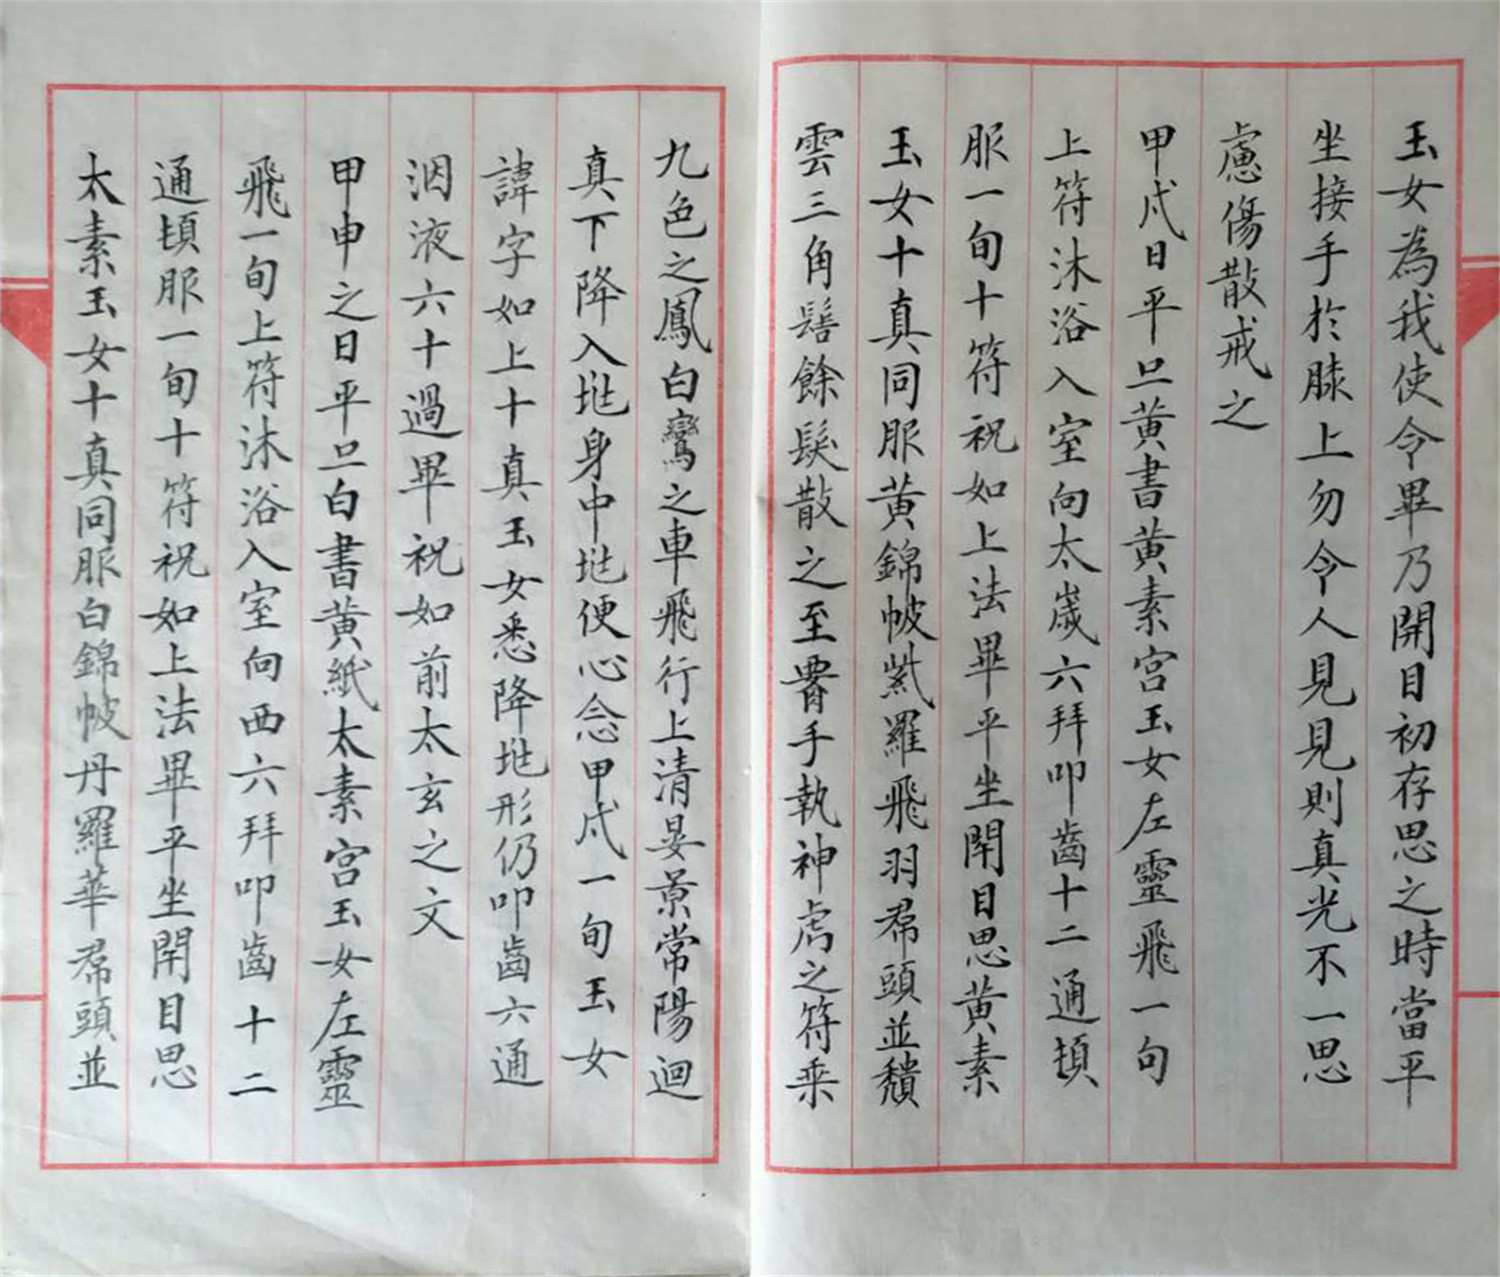 玉女為我使令畢乃開目初存思之時當平
坐接手於膝上勿令人見見則真光不一思
慮傷散戒之
甲戌日平旦黃書黃素宮玉女左靈飛一旬
上符沐浴入室向太歲六拜叩齒十二通頓
服一旬十符祝如上法畢平坐閉目思黃素
玉女十真同服黃錦帔紫羅飛羽帬頭並穨
雲三角髻餘髮散之至膺手執神虎之符乘
九色之鳳白鸞之車飛行上清晏景常陽迴
真下降入㘴身中㘴便心念甲戌一旬玉女
諱字如上十真玉女悉降㘴形仍叩齒六通
洇液六十過畢祝如前太玄之文
甲申之日平旦白書黃紙太素宮玉女左靈
飛一旬上符沐浴入室向西六拜叩齒十二
通頓服一旬十符祝如上法畢平坐閉目思
太素玉女十真同服白錦帔丹羅華帬頭並